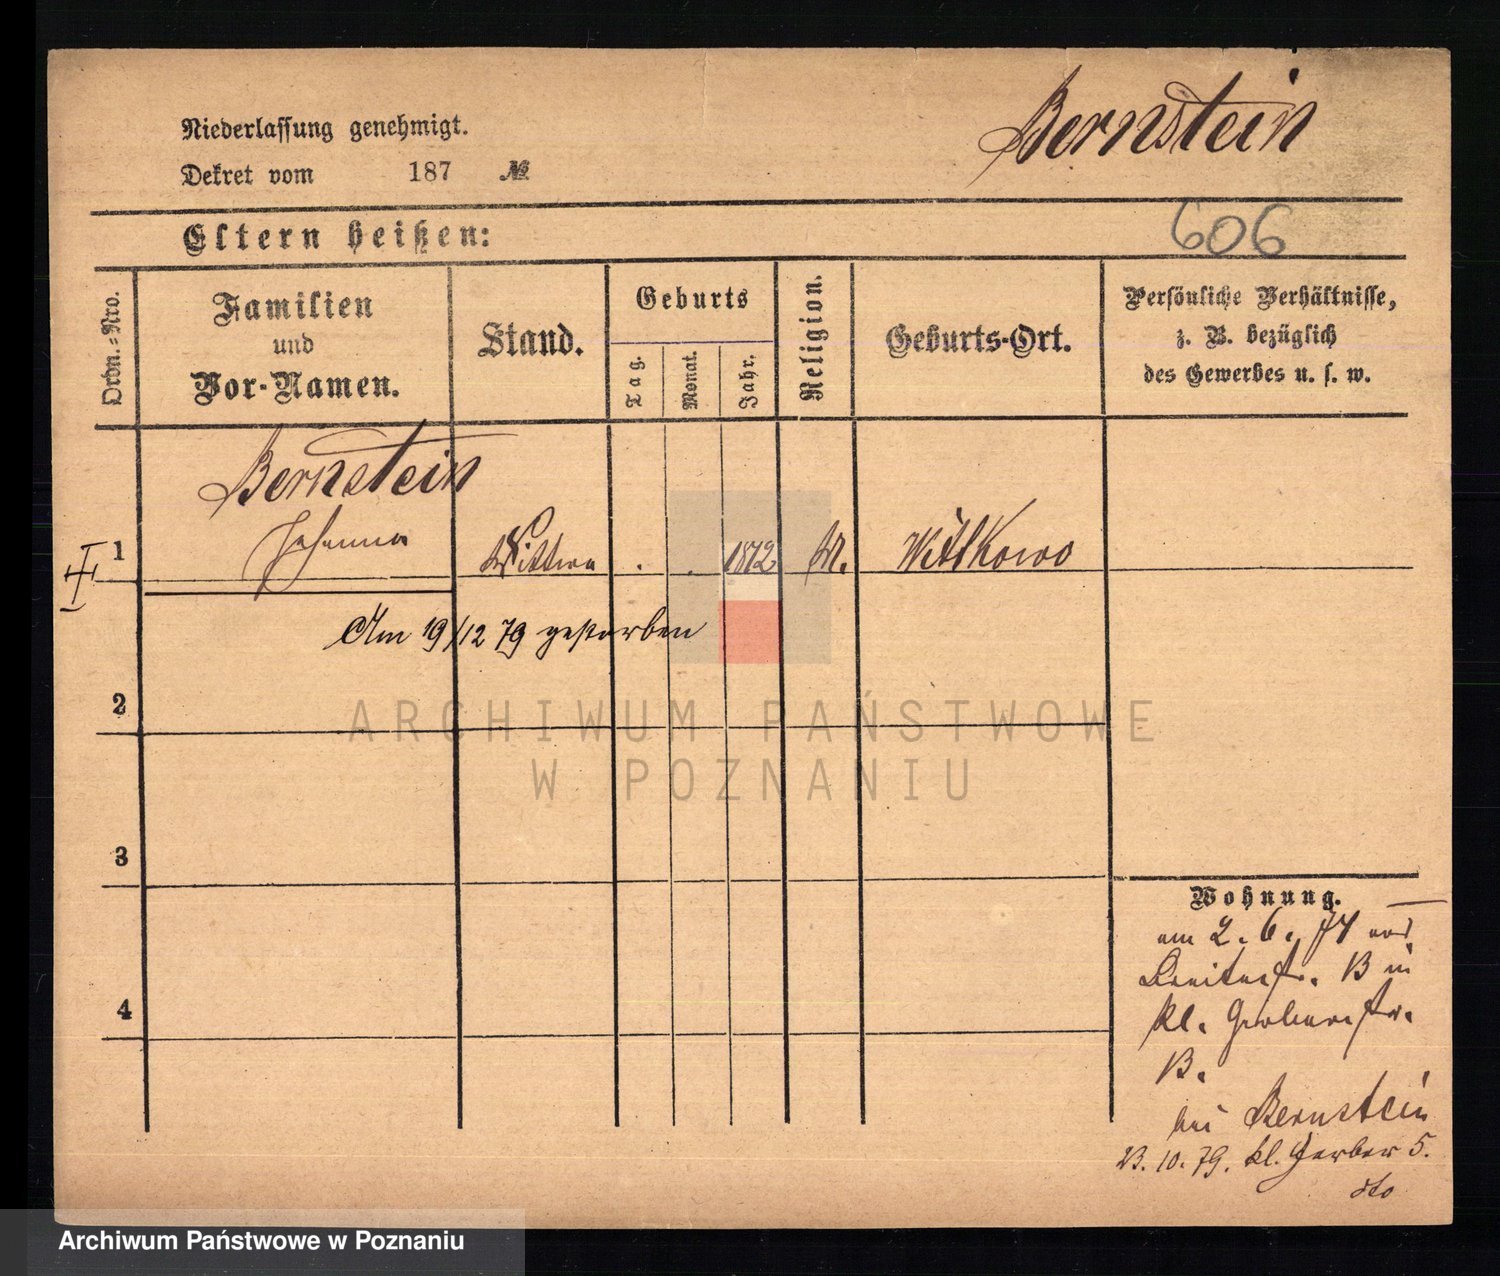 Niederlassung genehmigt.
Dekret vom 187 №
Bernstein
606
Eltern heißen:
Ordn.-Nro.
Familien
und
Vor-Namen.
Stand.
Geburts
Tag.
Monat.
Jahr.
Religion.
Geburts-Ort.
Persönliche Verhältnisse,
z. B. bezüglich
des Gewerbes u. s. w.
Bernstein
1 Johanna Wittwe . . 1812 M. Witkowo
Am 19/12 79 gestorben
2
3
4
Wohnung.
am 2. 6. 74 von
Breitestr. 13 in
kl. Gerberstr.
13.
bei Bernstein
23. 10. 79. kl. Gerber 5.
dto
ARCHIWUM PAŃSTWOWE
W POZNANIU
Archiwum Państwowe w Poznaniu